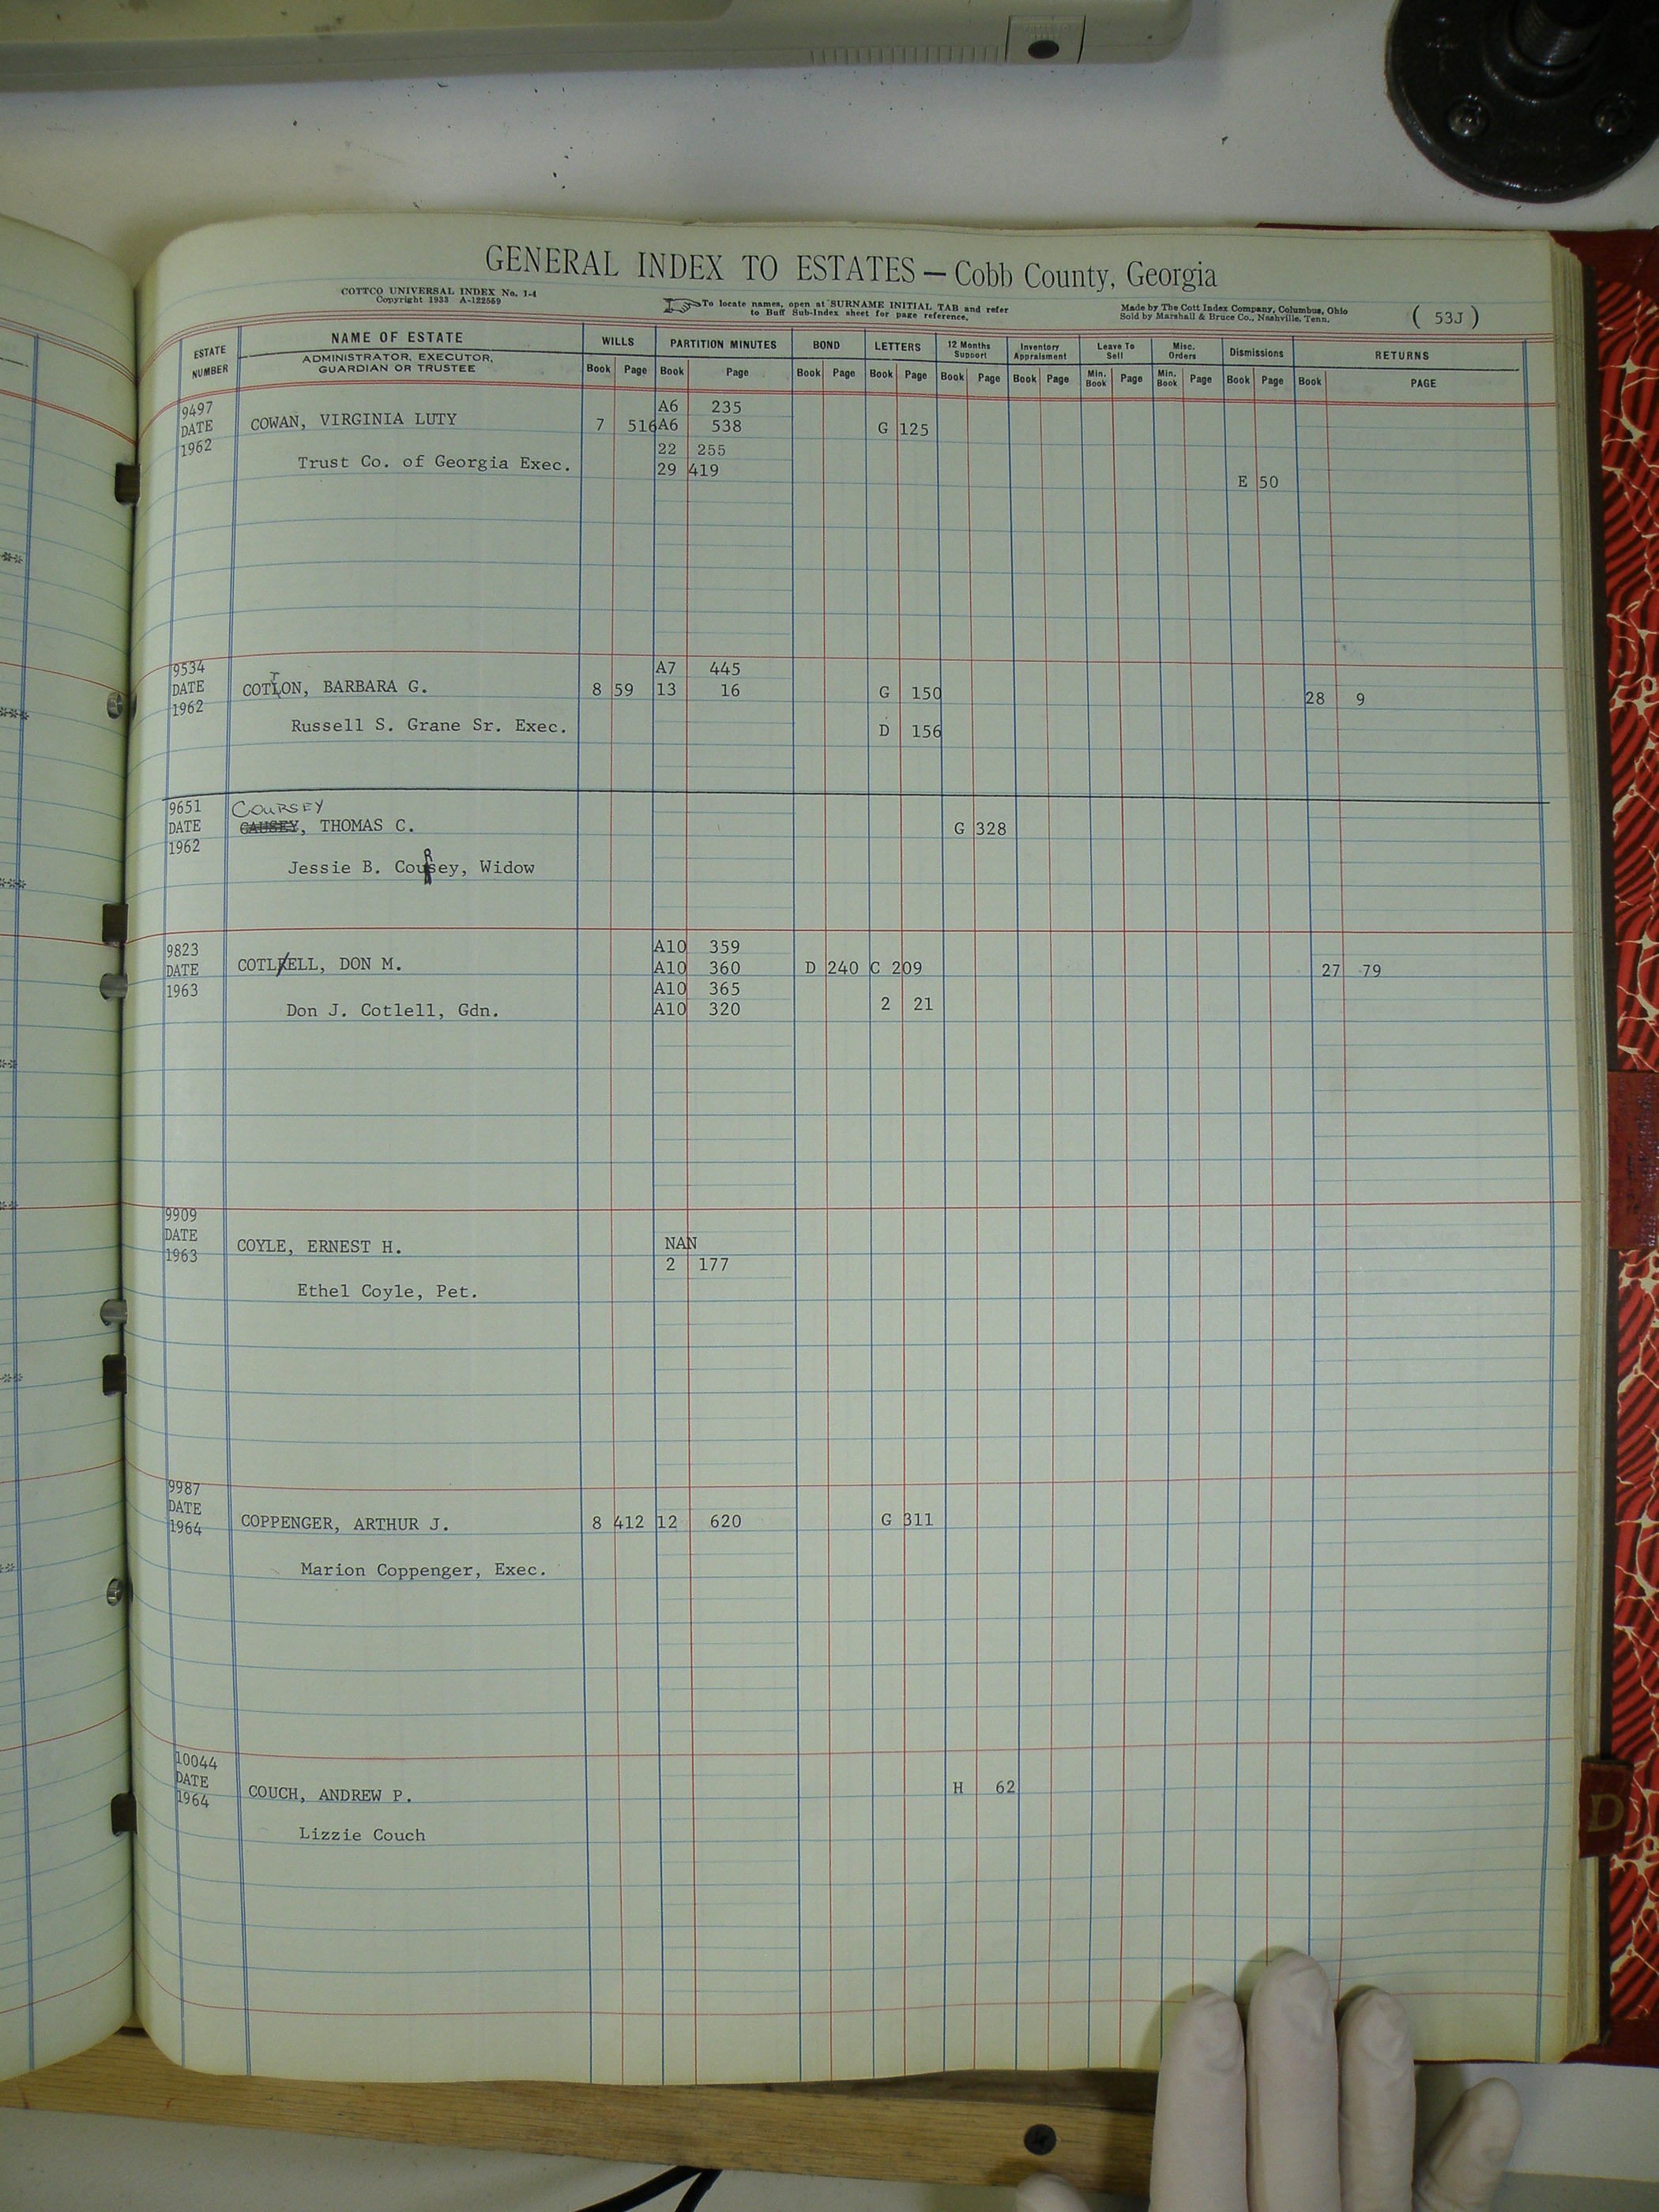 GENERAL INDEX TO ESTATES — Cobb County, Georgia
COTTCO UNIVERSAL INDEX No. 1-4
Copyright 1933 A-122559
To locate names, open at SURNAME INITIAL TAB and refer
to Buff Sub-Index sheet for page reference.
Made by The Cott Index Company, Columbus, Ohio
Sold by Marshall & Bruce Co., Nashville, Tenn.
( 53J )
ESTATE NUMBER
NAME OF ESTATE
ADMINISTRATOR, EXECUTOR,
GUARDIAN OR TRUSTEE
WILLS
Book Page
PARTITION MINUTES
Book Page
BOND
Book Page
LETTERS
Book Page
12 Months Support
Book Page
Inventory Appraisment
Book Page
Leave To Sell
Min. Book Page
Misc. Orders
Min. Book Page
Dismissions
Book Page
RETURNS
Book PAGE
9497 A6 235
DATE COWAN, VIRGINIA LUTY 7 516 A6 538 G 125
1962 22 255
Trust Co. of Georgia Exec. 29 419 E 50
9534 A7 445
DATE COTTON, BARBARA G. 8 59 13 16 G 150 28 9
1962
Russell S. Grane Sr. Exec. D 156
9651 COURSEY
DATE CAUSEY, THOMAS C. G 328
1962
Jessie B. Coursey, Widow
9823 A10 359
DATE COTLELL, DON M. A10 360 D 240 C 209 27 79
1963 A10 365
Don J. Cotlell, Gdn. A10 320 2 21
9909
DATE COYLE, ERNEST H. NAN
1963 2 177
Ethel Coyle, Pet.
9987
DATE
1964 COPPENGER, ARTHUR J. 8 412 12 620 G 311
Marion Coppenger, Exec.
10044
DATE COUCH, ANDREW P. H 62
1964
Lizzie Couch
D